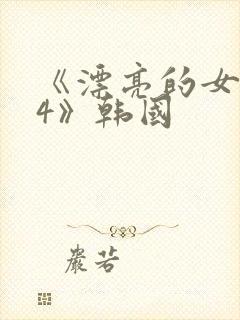 《漂亮的女
4》韩国
严若